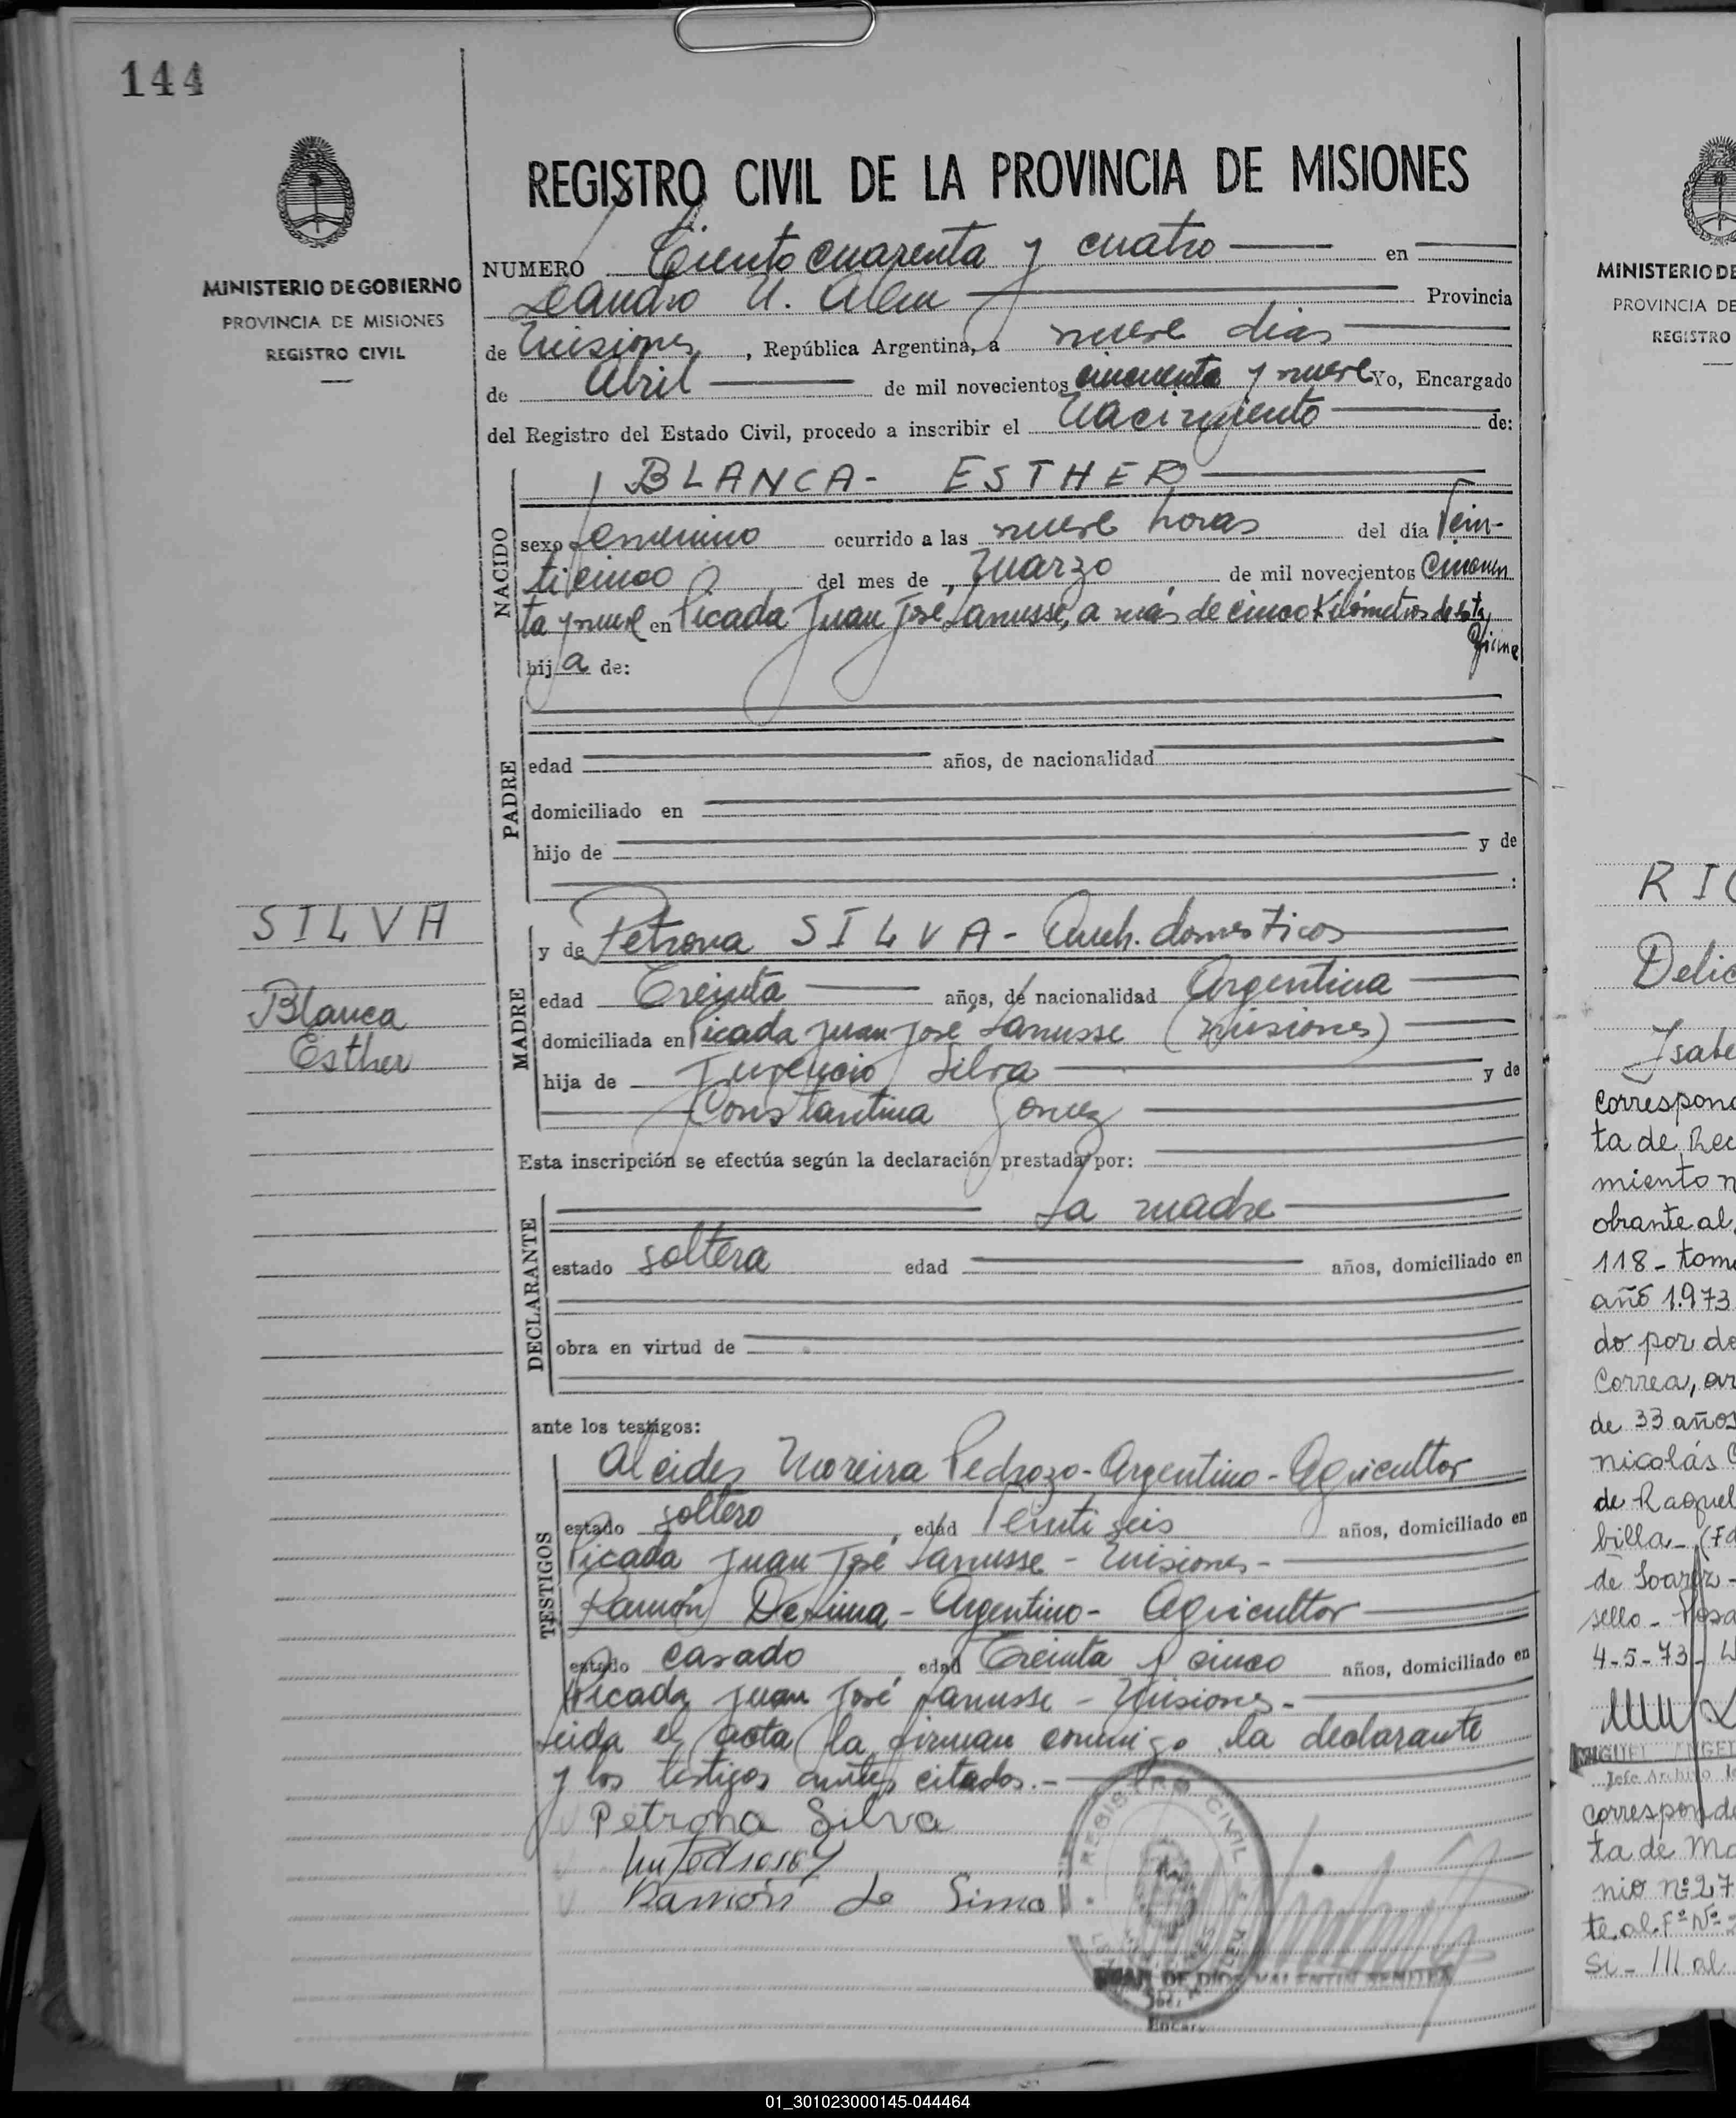 144
MINISTERIO DE GOBIERNO
PROVINCIA DE MISIONES
REGISTRO CIVIL
REGISTRO CIVIL DE LA PROVINCIA DE MISIONES
NUMERO Ciento cuarenta y cuatro en
Leandro N. Alem Provincia
de Misiones, República Argentina, a nueve dias
de Abril de mil novecientos cincuenta y nueve Yo, Encargado
del Registro del Estado Civil, procedo a inscribir el Nacimiento de:
NACIDO
BLANCA- ESTHER
sexo femenino ocurrido a las nueve horas del día Vein-
ticinco del mes de Marzo de mil novecientos cincuen
ta y nueve en Picada Juan José Lanusse, a más de cinco Kilómetros de esta
Oficina
hija de:
PADRE
edad años, de nacionalidad
domiciliado en
hijo de y de
:
SILVA
Blanca
Esther
MADRE
y de Petrona SILVA - Queh. domesticos
edad Treinta años, de nacionalidad Argentina
domiciliada en Picada Juan José Lanusse (Misiones)
hija de Silva y de
Constantina Gomez
Esta inscripción se efectúa según la declaración prestada por:
DECLARANTE
La madre
estado soltera edad años, domiciliado en
obra en virtud de
ante los testigos:
TESTIGOS
Alcides Moreira Pedrozo - Argentino - Agricultor
estado soltero, edad Veintiseis años, domiciliado en
Picada Juan José Lanusse - Misiones -
Ramón De Lima - Argentino - Agricultor
estado casado edad Treinta y cinco años, domiciliado en
Picada Juan José Lanusse - Misiones -
Leida el acta la firman conmigo la declarante
y los testigos antes citados. -
Petrona Silva
Ramón de Lima
REGISTRO CIVIL
JUAN DE DIOS VALENTIN BENITEZ
Encar.
MINISTERIO DE
PROVINCIA DE
REGISTRO
RIC
Delic
Isabe
correspond
ta de Rec
miento n
obrante al
118 - tomo
año 1.973
do por de
Correa, ar
de 33 años
nicolás C
de Raquel
billa - (Fd
de Soarez -
sello - Posa
4-5-73 -
MIGUEL ANGEL
Jefe Archivo
corresponde
ta de Ma
nio nº 27
te al Fº Nº 2
Si - III al
01_301023000145-044464